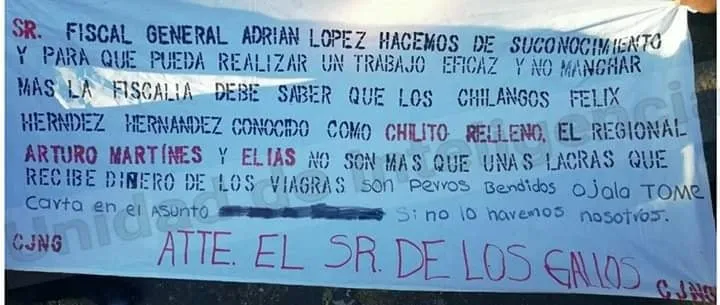 SR. FISCAL GENERAL ADRIAN LOPEZ HACEMOS DE SUCONOCIMIENTO
Y PARA QUE PUEDA REALIZAR UN TRABAJO EFICAZ Y NO MANCHAR
MAS LA FISCALIA DEBE SABER QUE LOS CHILANGOS FELIX
HERNDEZ HERNANDEZ CONOCIDO COMO CHILITO RELLENO, EL REGIONAL
ARTURO MARTÍNES Y ELIAS NO SON MAS QUE UNAS LACRAS QUE
RECIBE DINERO DE LOS VIAGRAS SON Perros Bendidos Ojala TOME
Carta en el Asunto Si no lo haremos nosotros.
CJNG ATTE. EL SR. DE LOS GALLOS CJNG
Unidad de Inteligencia